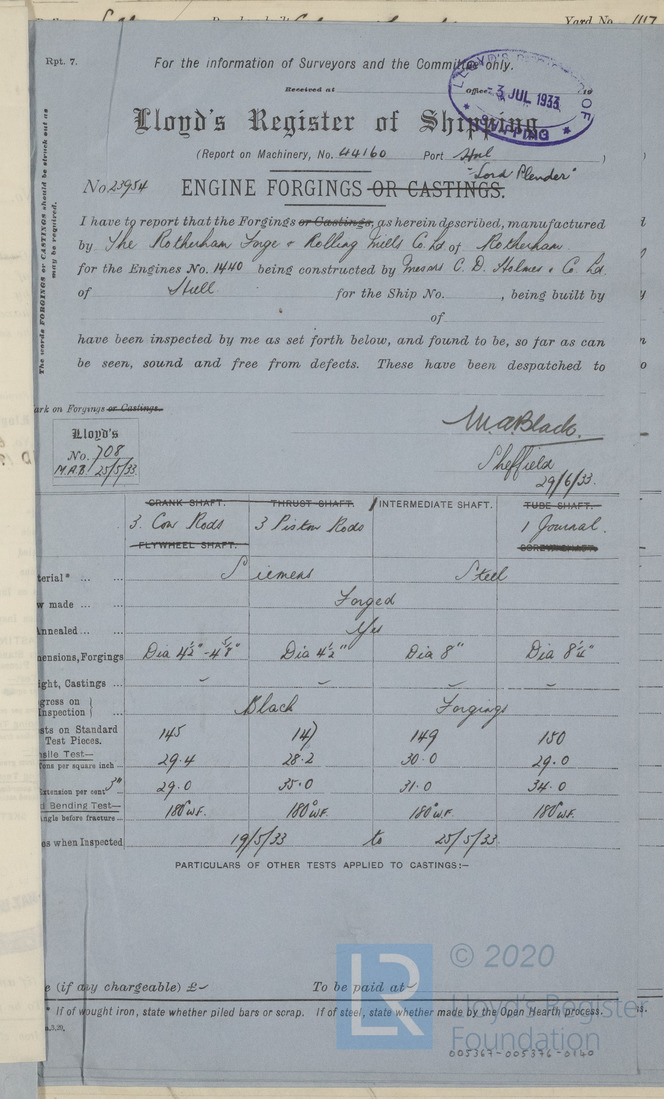 Yard No. 1117
Rpt. 7.
For the information of Surveyors and the Committee only.
Received at Office 19
LLOYD'S REGISTER OF SHIPPING
3 JUL 1933
Lloyd's Register of Shipping
(Report on Machinery, No. 44160 Port Hul )
"Lord Plender"
No 23954 ENGINE FORGINGS OR CASTINGS.
The words FORGINGS or CASTINGS should be struck out as
may be required.
I have to report that the Forgings or Castings, as herein described, manufactured
by The Rotherham Forge & Rolling Mills Co. Ld of Rotherham.
for the Engines No. 1440 being constructed by Messrs C. D. Holmes & Co Ld.
of Hull for the Ship No. , being built by
of
have been inspected by me as set forth below, and found to be, so far as can
be seen, sound and free from defects. These have been despatched to
ark on Forgings or Castings.
Lloyd's
No. 708
M.A.B. 25/5/33.
M.A. Black.
Sheffield
29/6/33.
CRANK SHAFT. THRUST SHAFT. 1 INTERMEDIATE SHAFT. TUBE SHAFT.
3. Con Rods 3 Piston Rods 1 Journal.
FLYWHEEL SHAFT. SCREW SHAFT.
terial* ... ... Siemens Steel
w made ... ... Forged
Annealed ... ... Yes
mensions, Forgings Dia 4½" - 4⅝" Dia 4½" Dia 8" Dia 8¼"
ight, Castings ...
gress on } Black Forgings
Inspection }
sts on Standard 145 147 149 150
Test Pieces.
nsile Test—
Tons per square inch ... 29.4 28.2 30.0 29.0
Extension per cent 3" 29.0 35.0 31.0 34.0
d Bending Test—
Angle before fracture ... 180° W.F. 180° W.F. 180° W.F. 180° W.F.
es when Inspected 19/5/33 to 25/5/33
PARTICULARS OF OTHER TESTS APPLIED TO CASTINGS:—
e (if any chargeable) £ To be paid at
* If of wought iron, state whether piled bars or scrap. If of steel, state whether made by the Open Hearth process.
LR © 2020
Lloyd's Register
Foundation
005367-005376-0140